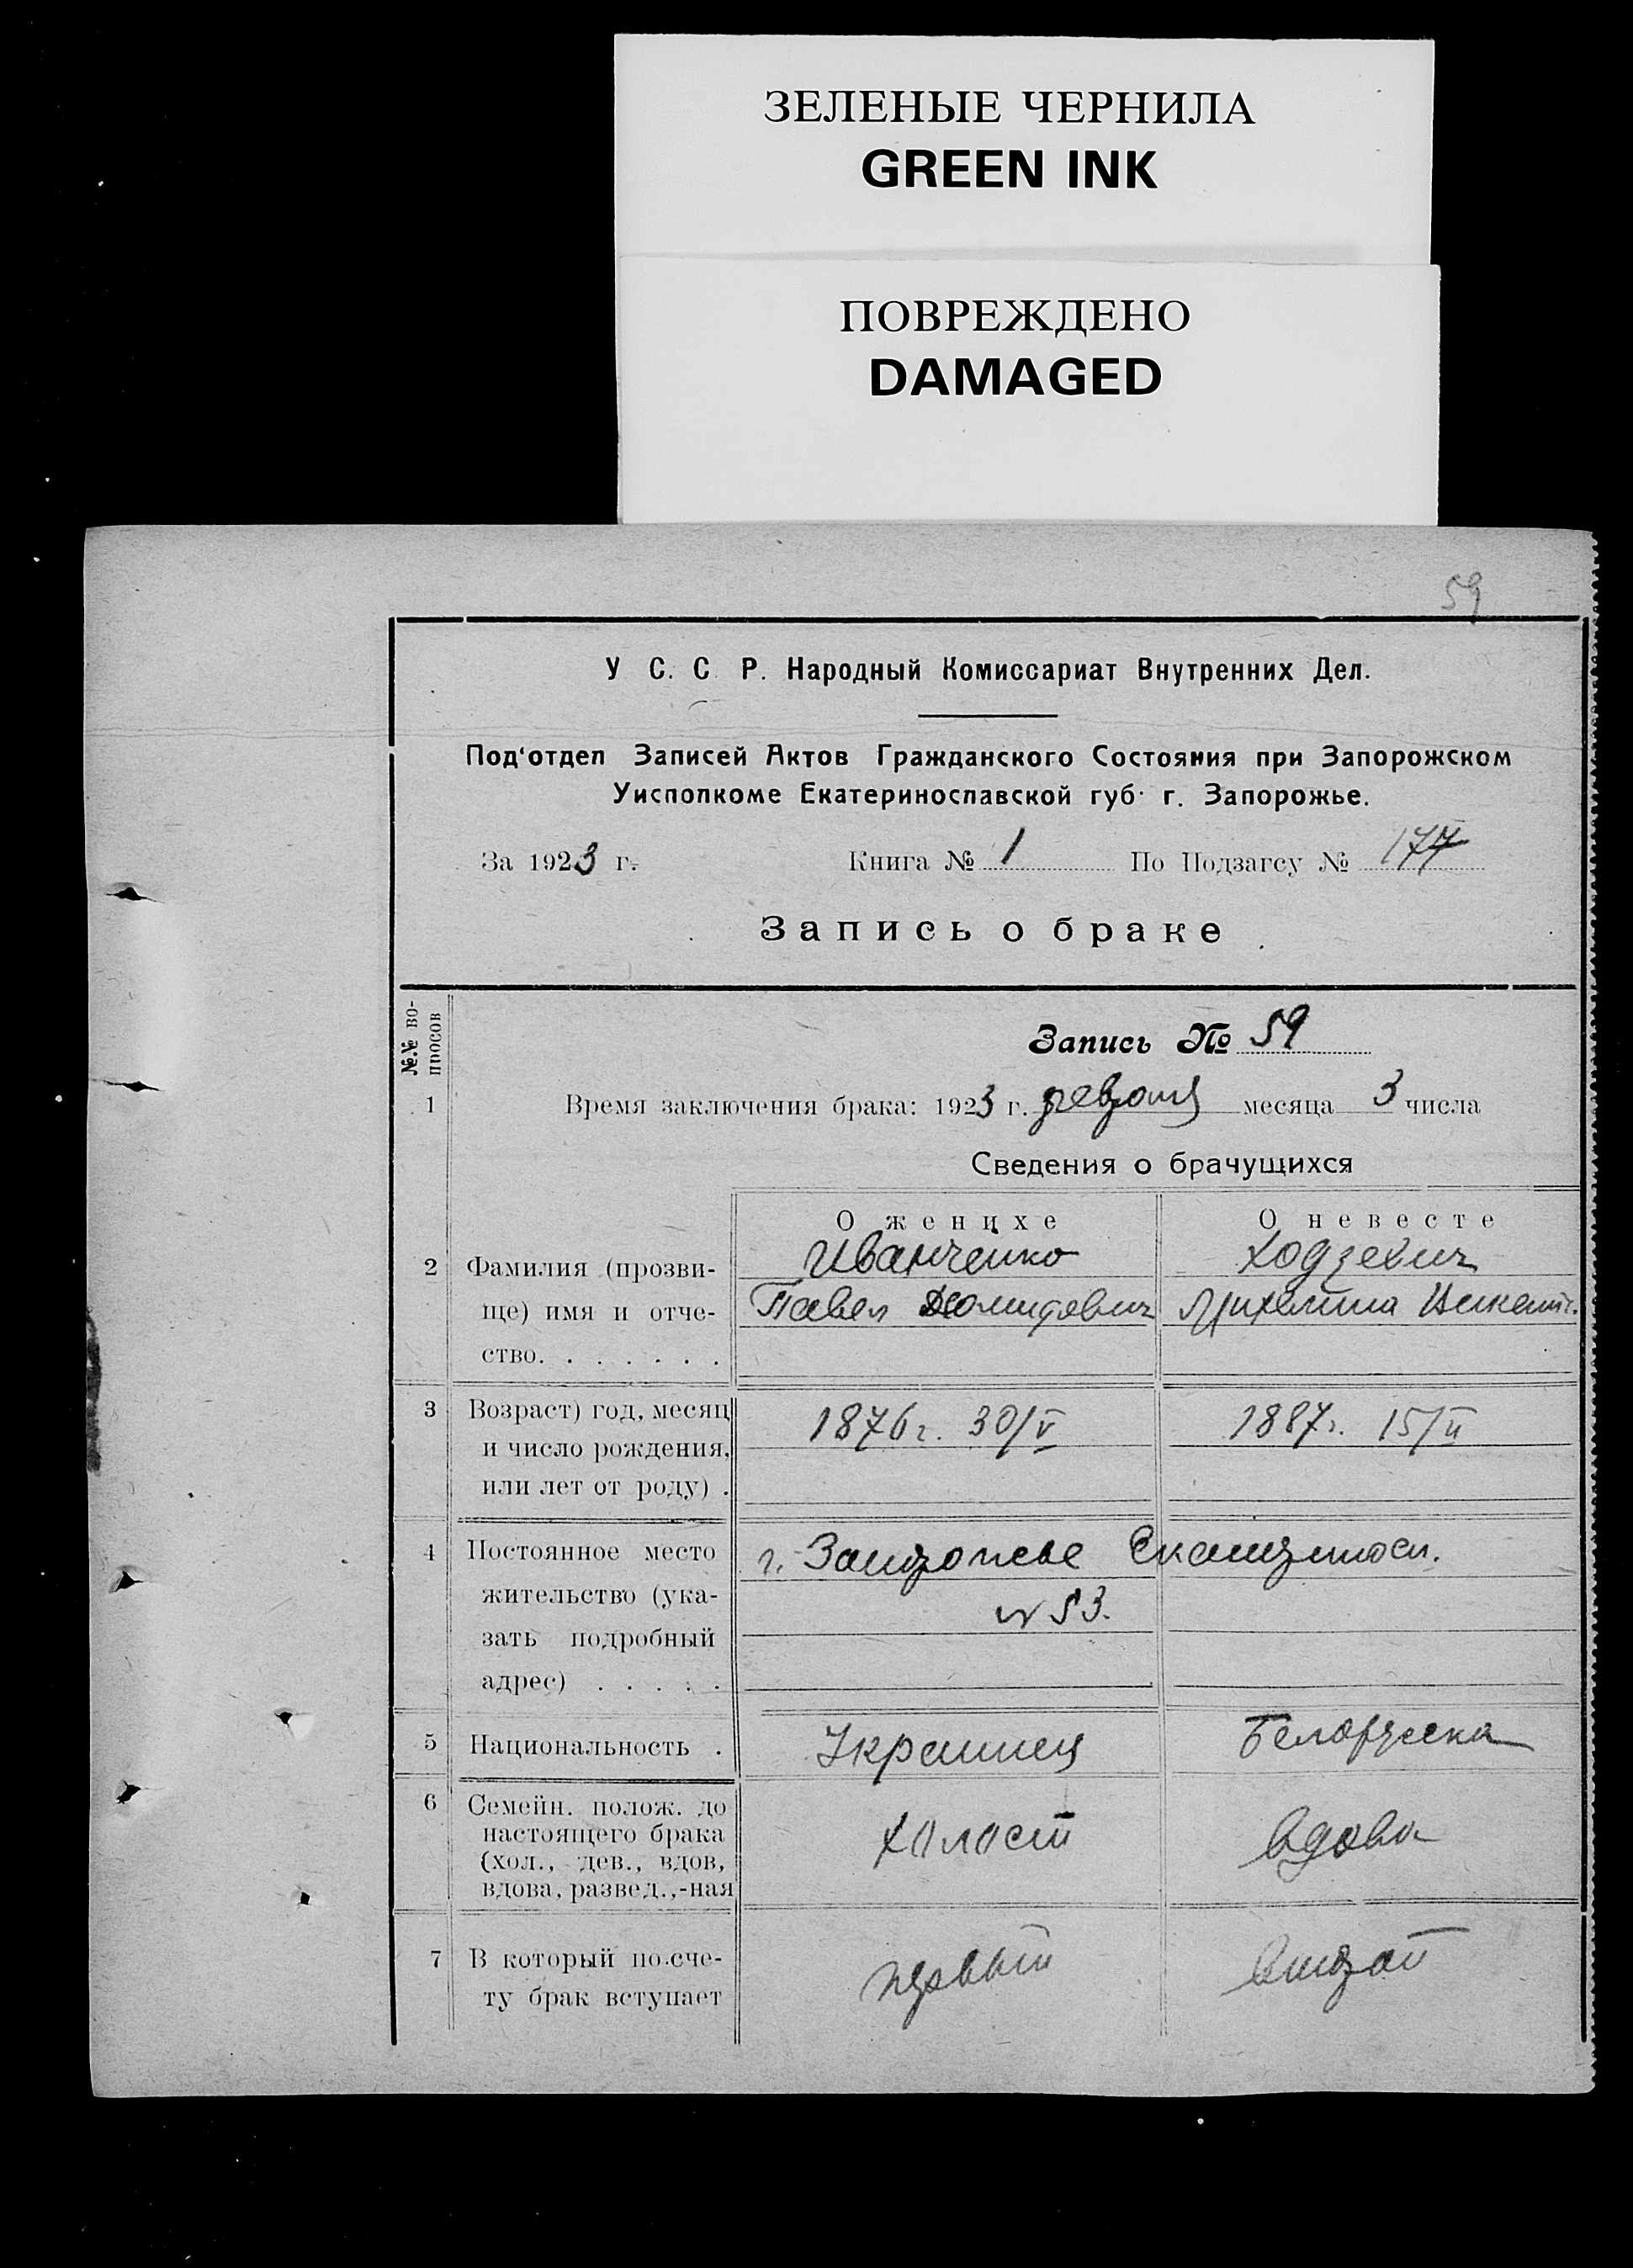 ЗЕЛЕНЫЕ ЧЕРНИЛА
GREEN INK
ПОВРЕЖДЕНО
DAMAGED
59
У С. С. Р. Народный Комиссариат Внутренних Дел.
Под‘отдел Записей Актов Гражданского Состояния при Запорожском
Уисполкоме Екатеринославской губ. г. Запорожье.
За 1923 г. Книга № 1 По Подзагсу № 177
Запись о браке
№№ вопросов
Запись № 59
1 Время заключения брака: 1923 г. февраля месяца 3 числа
Сведения о брачущихся
О женихе О невесте
2 Фамилия (прозви- Иванченко Ходзевич
ще) имя и отче- Павел Диомидович Михалина Викент.
ство. . . . . . .
3 Возраст) год, месяц 1876 г. 30/V 1887 г. 15/II
и число рождения,
или лет от роду) .
4 Постоянное место г. Запорожье Екатериносл.
жительство (ука- № 53.
зать подробный
адрес) . . . . .
5 Национальность . Украинец Белорусска
6 Семейн. полож. до
настоящего брака холост вдова
(хол., дев., вдов,
вдова, развед.,-ная
7 В который по сче- первый второй
ту брак вступает